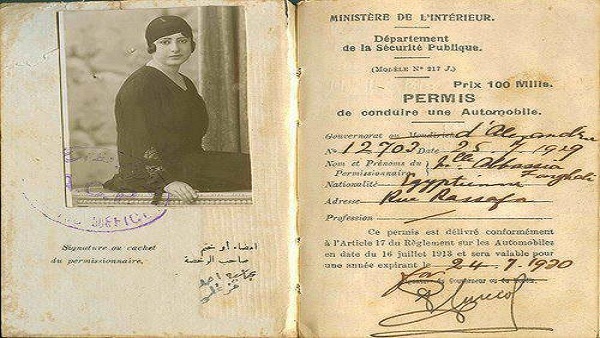 Signature ou cachet
du permissionnaire.
امضاء أو ختم
صاحب الرخصة
MINISTÈRE DE L'INTÉRIEUR.
Département
de la Sécurité Publique.
(MODÈLE N° 217 J.)
Prix 100 Mills.
PERMIS
de conduire une Automobile.
Gouvernorat ou Moudirieh d'Alexandrie
N° 12703 Date 25 7 1929
Nom et Prénoms du Mlle Abbassia
Permissionnaire Farghali
Nationalité Egyptienne
Adresse Rue Rassafa
Profession
Ce permis est délivré conformément
à l'Article 17 du Règlement sur les Automobiles
en date du 16 juillet 1913 et sera valable pour
une année expirant le 24.7.1930